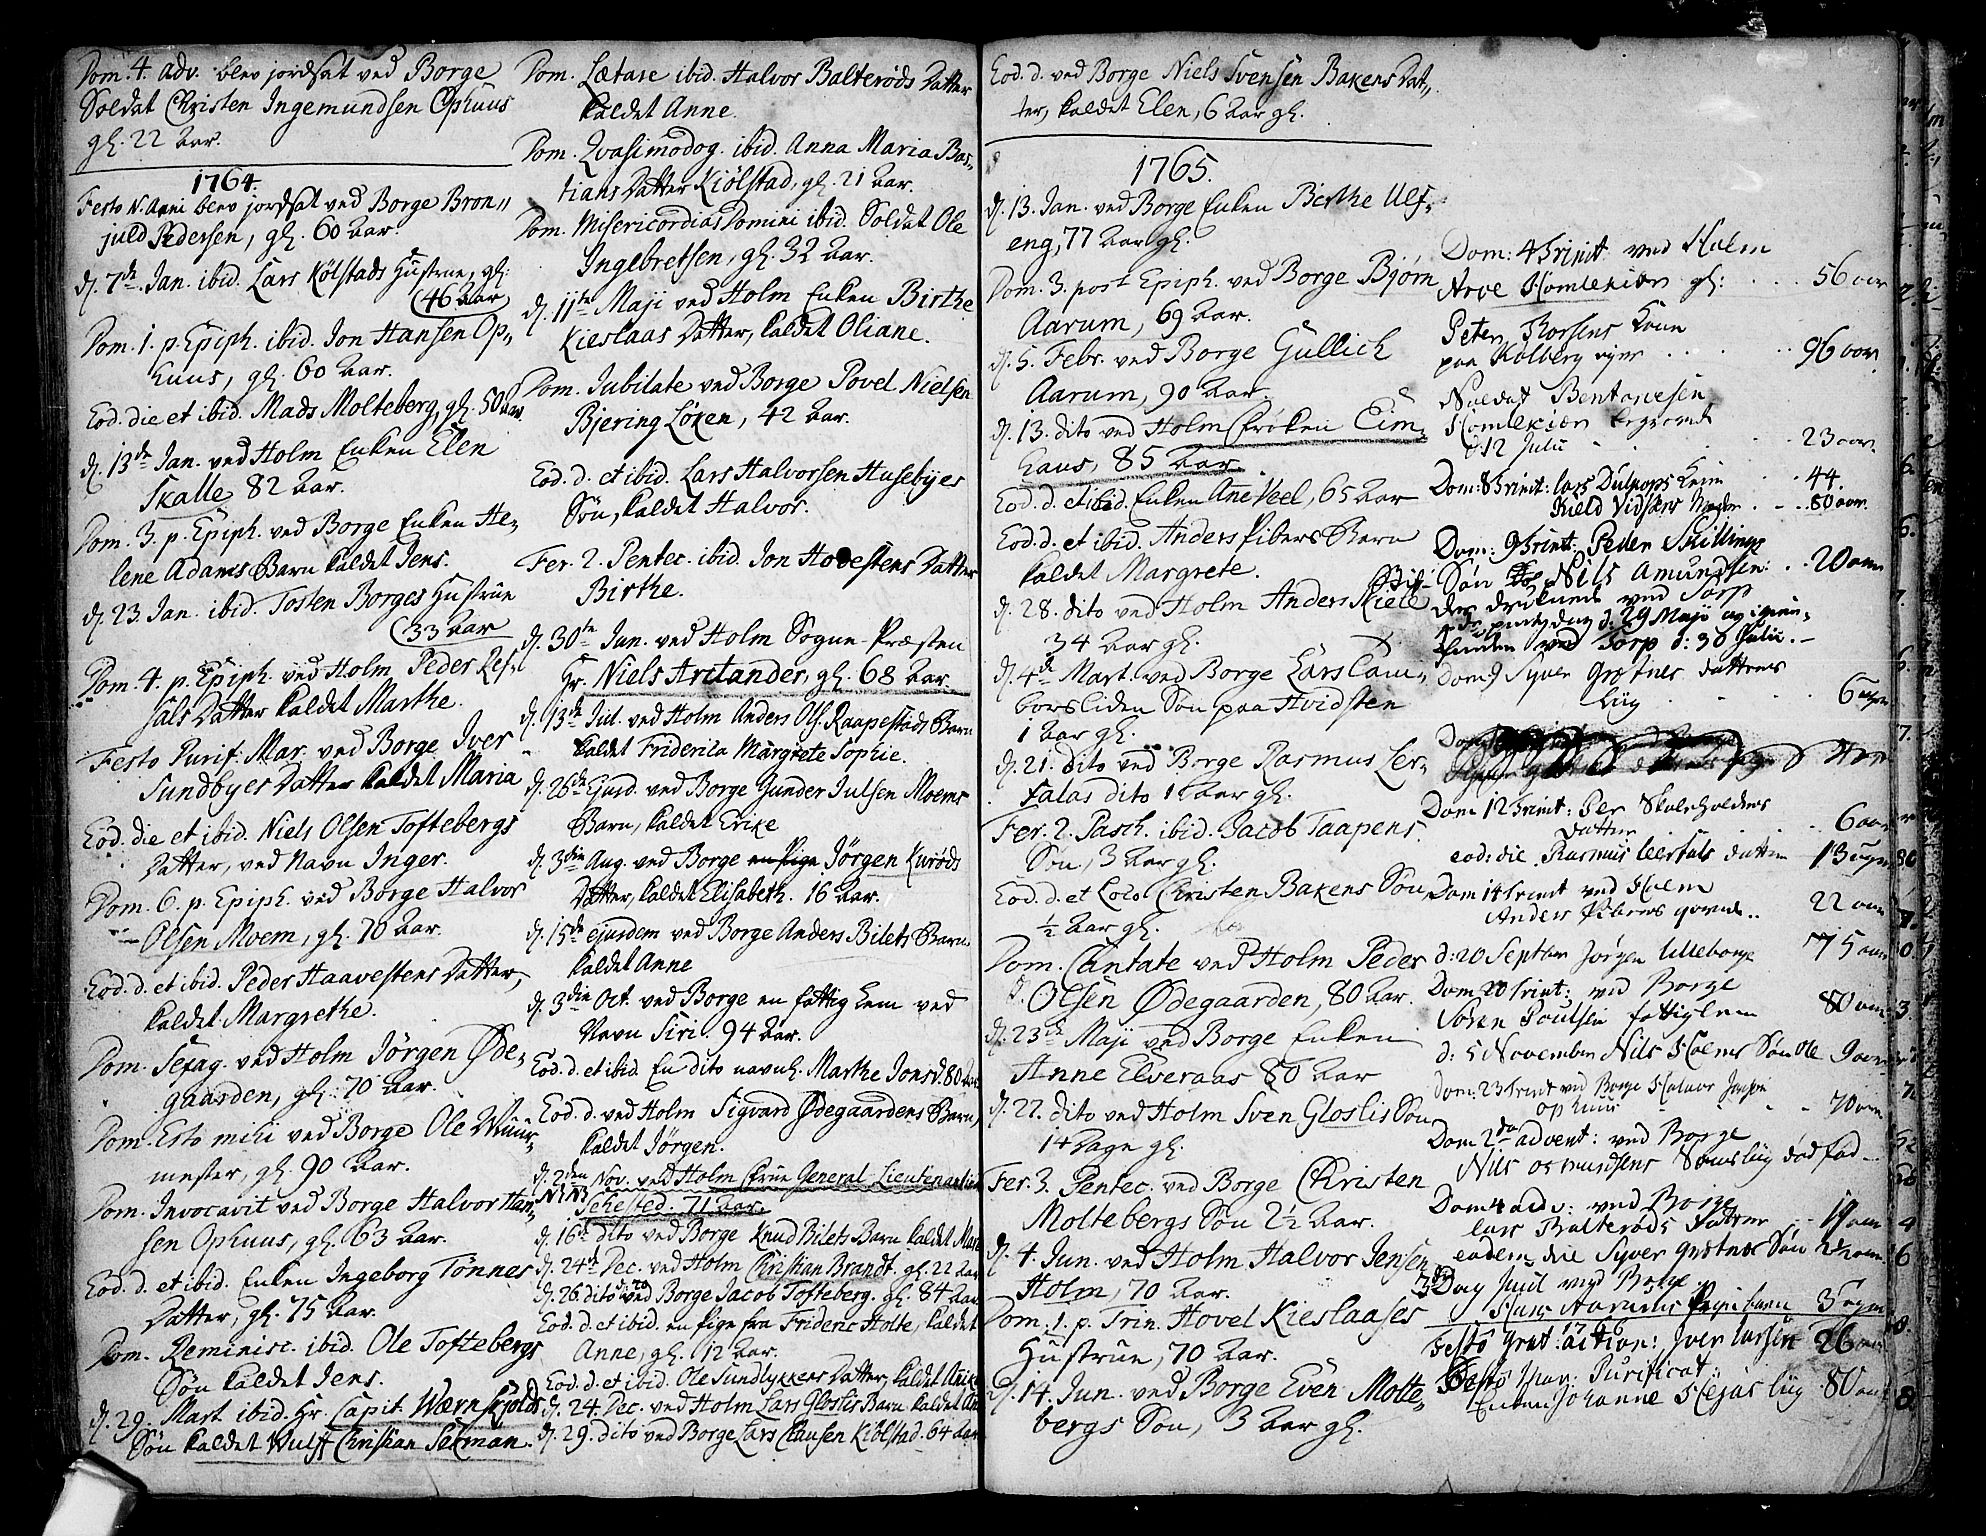 Dom. 4. adv. blev jordsat ved Borge
Soldat Christen Ingemundsen Ophuus
gl. 22 Aar.
1764.
Festo N. Anni blev jordsat ved Borge Bron„
juld Pedersen, gl. 60 Aar.
d. 7de Jan. ibid. Lars Kölstads Hustrue, gl.
46 Aar
Dom. 1. p. Epiph. ibid. Jon Hansen Op„
huus, gl. 60 Aar.
Eod. die et ibid. Mads Molteberg, gl. 50 Aar.
d. 13de Jan. ved Holm Enken Elen
Skalle 82 Aar.
Dom. 3. p. Epiph. ved Borge Enken He„
lene Adams Barn kaldet Jens.
d. 23. Jan. ibid. Tosten Borges Hustrue
33 Aar
Dom. 4. p. Epiph. ved Holm Peder Res„
sals Datter kaldet Marthe.
Festo Purif. Mar. ved Borge Iver
Sundbyes Datter kaldet Maria
Eod. die et ibid. Niels Olsen Toftebergs
Datter, ved Navn Inger.
Dom. 6. p. Epiph. ved Borge Halvor
Olsen Moem, gl. 70 Aar.
Eod. d. et ibid. Peder Haavestens Datter,
kaldet Margrethe.
Dom. Sexag. ved Holm Jörgen Øde„
gaarden, gl. 70 Aar.
Dom. Esto mihi ved Borge Ole Muur„
mester, gl. 90 Aar.
Dom. Invocavit ved Borge Halvor Han„
sen Ophuus, gl. 63 Aar.
Eod. d. et ibid. Enken Ingeborg Tönnes
Datter, gl. 75 Aar.
Dom. Reminisc. ibid. Ole Toftebergs
Søn kaldet Jens.
d. 29. Mart. ibid. Hr. Capit. Wærnskjolds
Søn kaldet Wulff Christian Herman.
Dom. Lætare ibid. Halvor Balterøds Datter
kaldet Anne.
Dom. Qvasimodog. ibid. Anna Maria Bas„
tians Datter Kiölstad, gl. 21 Aar.
Dom. Misericordias Domini ibid. Soldat Ole
Ingebretsen, gl. 32 Aar.
d. 11te Maji ved Holm Enken Birthe
Kieslaas Datter, kaldet Oliane.
Dom. Iubilate ved Borge Povel Nielsen
Bjering Löken, 42 Aar.
Eod. d. et ibid. Lars Halvorsen Husebyes
Søn, kaldet Halvor.
Fer. 2. Pentec. ibid. Jon Hovestens Datter
Birthe.
d. 30te Jun. ved Holm Sogne-Præsten
Hr. Niels Arctander, gl. 68 Aar.
d. 13de Jul. ved Holm Anders Ols. Raapestads Barn
kaldet Friderica Margrete Sophie.
d. 26de Ejusd. ved Borge Gunder Julsen Moems
Barn, kaldet Erike
d. 3die Aug. ved Borge en Pige Jörgen Kurøds
Datter, kaldet Elisabeth. 16 Aar.
d. 15de ejusdem ved Borge Anders Bilets Barn
kaldet Anne
d. 3die Oct. ved Borge en fattig Lem ved
Navn Siri. 94 Aar.
Eod. d. et ibid. En dito navnl. Marthe Jonsd. 80 Aar
Eod. d. ved Holm Sigvard Ødegaardens Barn,
kaldet Jörgen.
d. 2den Nov. ved Holm Frue General Lieutenantinde
Sehested. 71 Aar.
d. 16de dito ved Borge Knud Bilets Barn kaldet
d. 24de Dec. ved Holm Christian Brandt. gl. 22 Aar
d. 26 dito ved Borge Jacob Tofteberg. gl. 84 Aar
Eod. d. et ibid. en Pige fra Frideric Holte, kaldet
Anne, gl. 12 Aar.
Eod. d. et ibid. Ole Sundlykkers Datter, kaldet
d. 24. Dec. ved Holm Lars Gloslis Barn kaldet
d. 29. dito ved Borge Lars Clausen Kiölstad. 64 Aar
Eod. d. ved Borge Niels Svensen Bakens Dat„
ter, kaldet Elen, 6 Aar gl.
1765.
d. 13. Jan. ved Borge Enken Birthe Ulf„
eng, 77 Aar gl.
Dom. 3. post Epiph. ved Borge Bjørn
Aarum, 69 Aar.
d. 5. Febr. ved Borge Gullich
Aarum, 90 Aar.
d. 13. dito ved Holm Frøken Eim„
haus, 85 Aar.
Eod. d. et ibid. Enken Ane Veel, 65 Aar
Eod. d. et ibid. Anders Pibers Barn
kaldet Margrete.
d. 28. dito ved Holm Anders Kiele
34 Aar gl.
d. 4de Mart. ved Borge Lars Cam„
borsliden Søn paa Hvidsten
1 Aar gl.
d. 21. dito ved Borge Rasmus Ler„
salas dito 1 Aar gl.
Fer. 2. Pasch. ibid. Jacob Taapens
Søn, 3 Aar gl.
Eod. d. et Loco Christen Bakens Søn
½ Aar gl.
Dom. Cantate ved Holm Peder
Olsen Ødegaarden, 80 Aar.
d. 23de Maji ved Borge Enken
Anne Elveraas 80 Aar
d. 27. dito ved Holm Sven Gloslis Søn
14 Dage gl.
Fer. 3. Pentec. ved Borge Christen
Moltebergs Søn 2½ Aar.
d. 4. Jun. ved Holm Halvor Jensen
Holm, 70 Aar.
Dom. 1. p. Trin. Hovel Kieslaases
Hustrue, 70 Aar.
d. 14. Jun. ved Borge Even Molte„
bergs Søn, 3 Aar gl.
Dom: 4 Trinit. ved Holm
Arve Homlekiær gl: . . . 56 aar
Peter Thorsens Kone
paa Kolberg eyer . . . . 96 aar
Soldat Bent
Homlekiær begravet
d 12 Julii . . . 23 aar
Dom: 8 Trinit: Lars Kone . . 44.
Kield Vidstens Moder . . . 80 aar.
Dom: 9 Trinit: Peder Skillings
Søn Nils Amundsen . . 20 aar
der druknede ved Torp
d. 29 Maji og igien„
funden ved Torp d: 30 Julii. –
Dom 9 Syver Grøtnes datters
Liig . . . 6 uger
Dom 12 Trinit: Per Skoleholders
Datter . . 6 aar
eod: die Rasmus Leersals datter 13 uger
Dom 14 Trinit ved Holm
Anders Pibers . . 22 aar
d: 20 Septbr Jørgen Ulleborge 75 aar
Dom 20 Trinit: ved Borge
Søren Poulsen fattiglem 80 aar
d: 5 November Nils Holms Søn Ole 9 aar
Dom: 23 Trinit ved Borge Halvor
ophuus . . 70 aar
Dom 2da advent: ved Borge
Nils osmundsens Søns liig dødfød
Dom 4 adv: ved Borge
Lars Balterøds Datter . . 19 aar
eadem die Syver grøtnes Søn 2½ aar
3die Dag Juul ved Borge
Hans Aarums Pigebarn 3 uger
1766
Festo Grat: action: Iver Larsen 26 aar
Festo Mar: Purificat:
Enken Johanne liig 80 aar